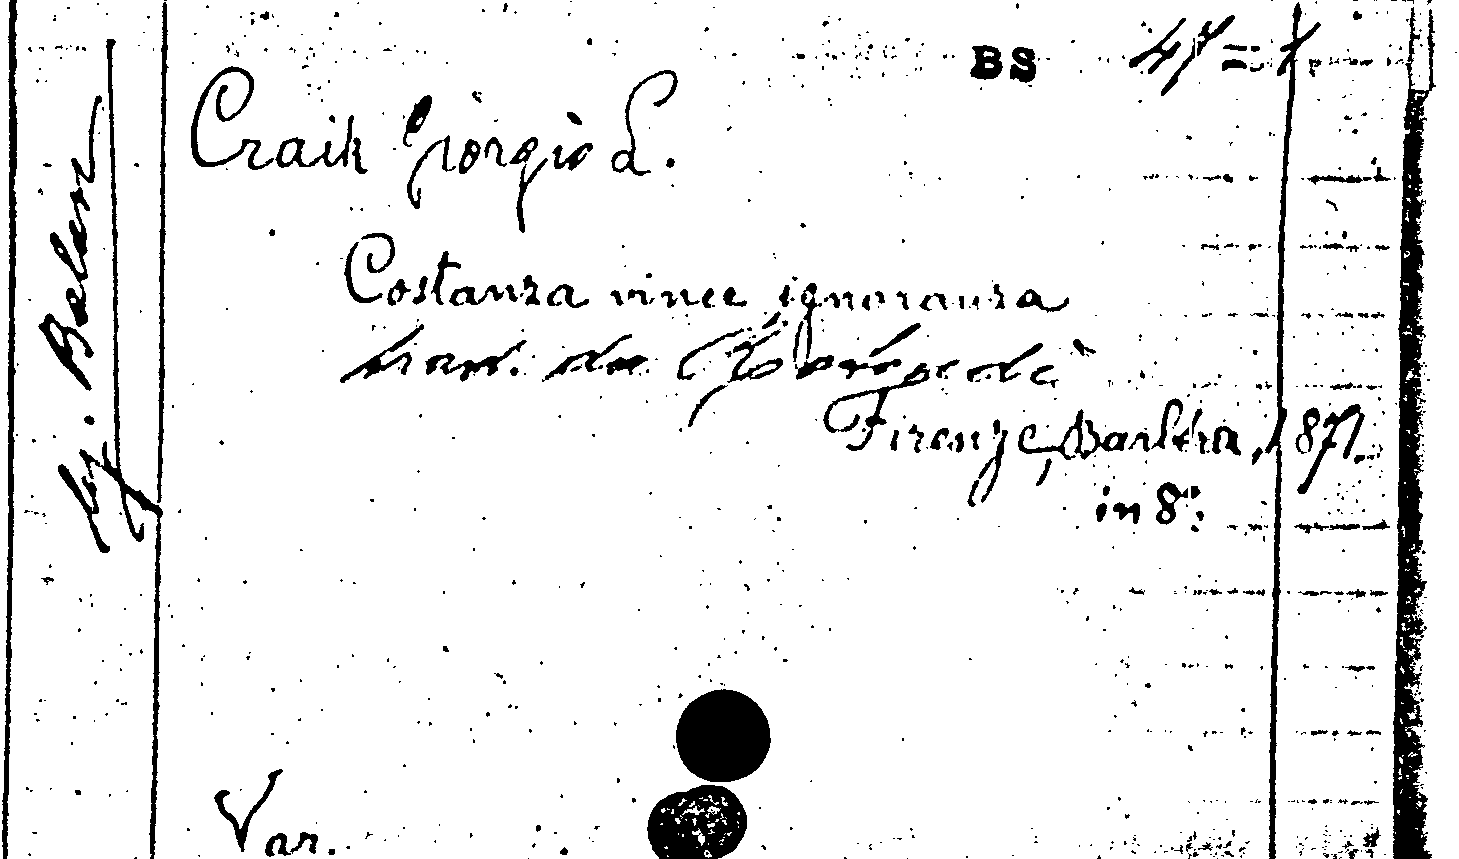 BS
Craik Giorgio L.
Costanza vince ignoranza
trad. da
Firenze, Barbèra, 1871.
in 8°.
Var.